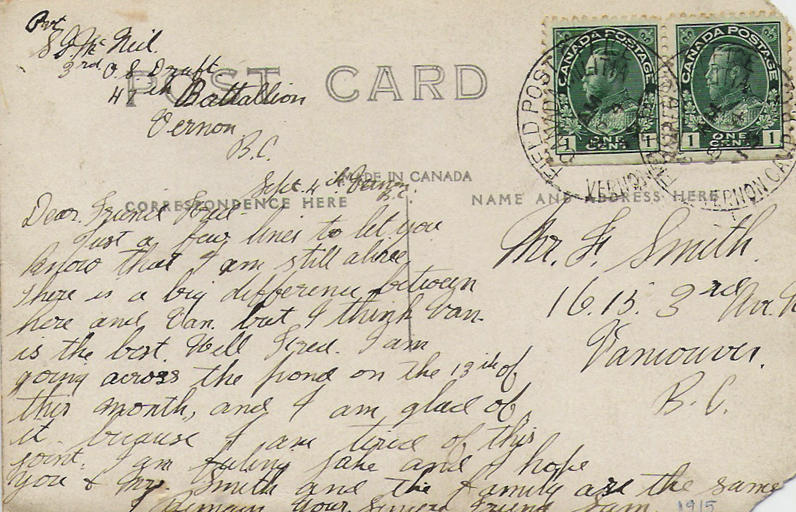 Pvt
S. Mc Neil.
3rd O S Draft
47th Battallion
Vernon
B.C.
POST CARD
CANADA POSTAGE
1 ONE CENT 1
CANADA POSTAGE
1 ONE CENT 1
FIELD POST
VERNON
VERNON CAMP
MADE IN CANADA
CORRESPONDENCE HERE
NAME AND ADDRESS HERE
Sept. 4th Vernon
B.C.
Dear Friend Fred-
Just a few lines to let you
know that I am still alive,
There is a big difference between
here and Van. but I think Van.
is the best. Well Fred. I am
going across the pond on the 13th of
this month, and I am glad of
it because I am tired of this
joint. I am feeling jake and I hope
you & Mrs. Smith and the Family are the same
I Remain Your Sincere Friend Sam.
1915
Mr. F. Smith.
1615. 3rd Av.
Vancouver.
B.C.